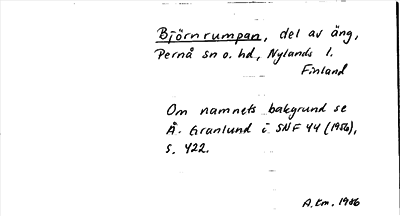 Björnrumpan, del av äng,
Pernå sn o. hd, Nylands l.
Finland
Om namnets bakgrund se
Å. Granlund i SNF 44 (1956),
s. 422.
A.Em. 1986